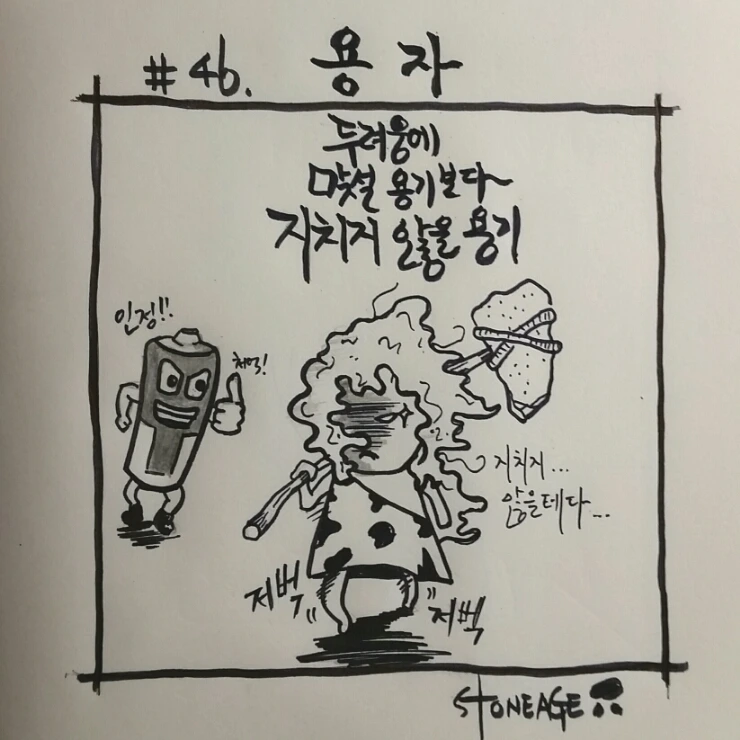 #46. 용자
두려움에
맞설 용기보다~
지치지 않을 용기
인정!!
척!
지치지...
않을테다...
저벅
저벅
STONEAGE